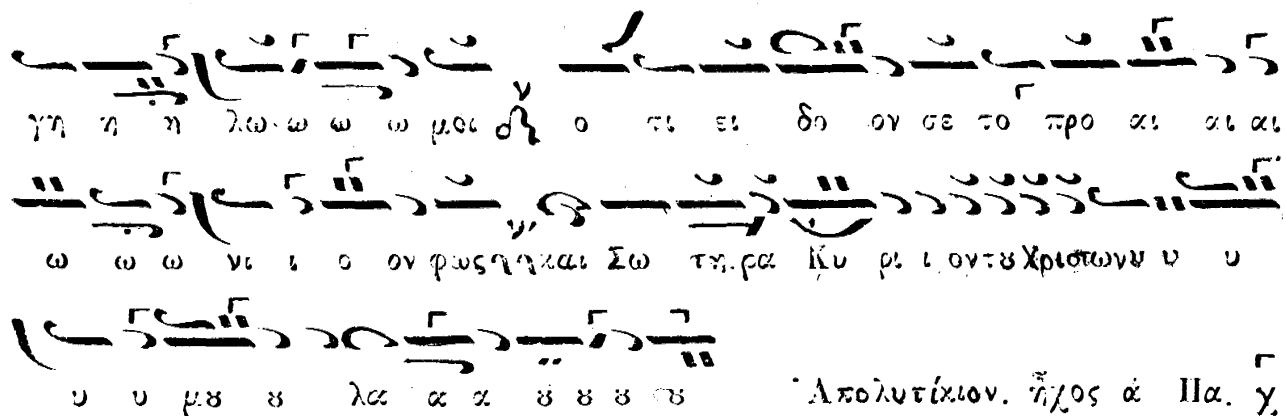 γη η η λω ω ω ω μοι ο τι ει δο ον σε το προ αι αι αι
ω ω ω νι ι ο ον φως και Σω τη ρα Κυ ρι ι ον τȣ Χριστωνυ υ υ
υ υ μȣ ȣ λα α α ȣ ȣ ȣ ȣ Ἀπολυτίκιον. ἦχος ἁ Πα.